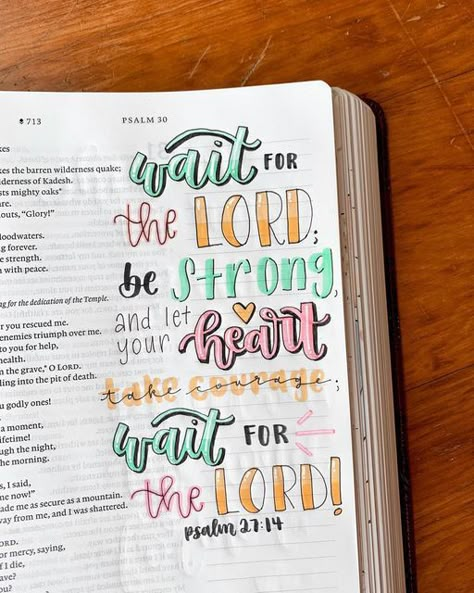 713
PSALM 30
kes the barren wilderness quake;
lderness of Kadesh.
sts mighty oaks
are.
outs, "Glory!"
loodwaters.
ng forever.
e strength.
n with peace.
ng for the dedication of the Temple.
r you rescued me.
enemies triumph over me.
to you for help,
health.
the grave, O LORD.
lling into the pit of death.
u godly ones!
a moment,
lifetime!
ough the night,
the morning.
s, I said,
me now!"
ade me as secure as a mountain.
way from me, and I was shattered.
ORD.
or mercy, saying,
if I die,
ave?
you?
wait FOR
the LORD;
be strong,
and let
your heart
take courage;
wait FOR
the LORD!
psalm 27:14